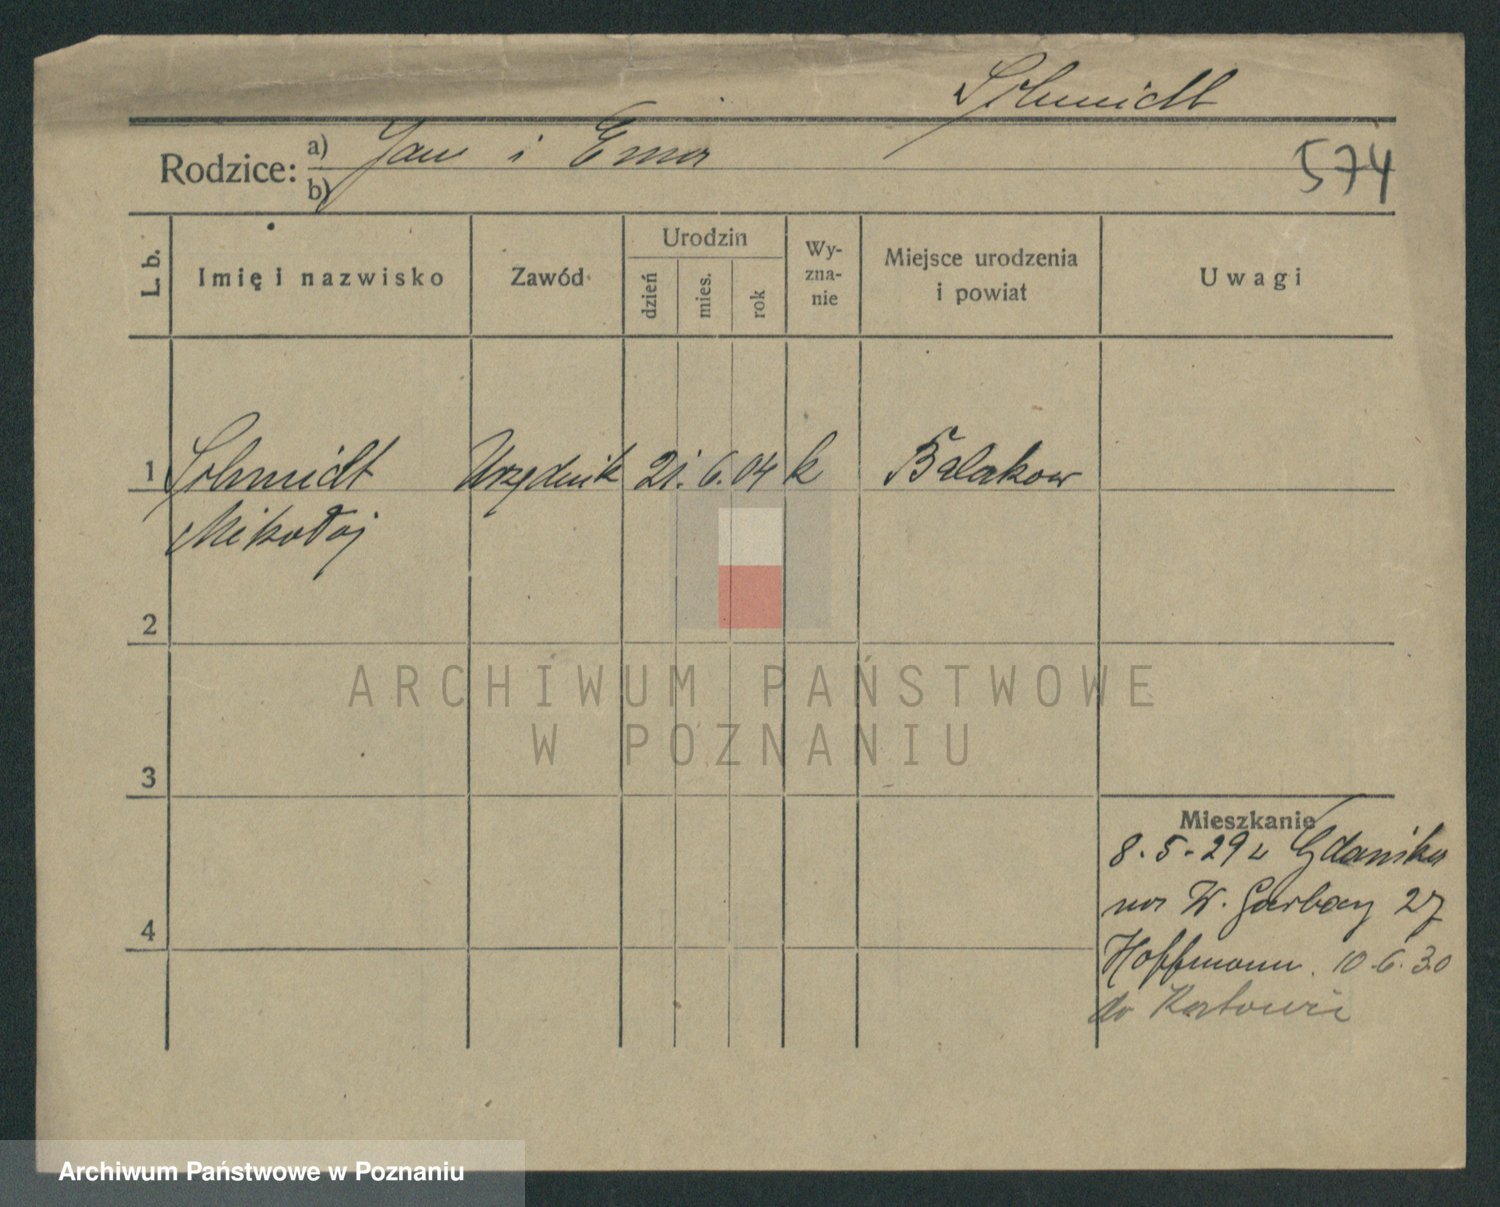 Schmidt
Rodzice: a) Jan i Ema
b)
574
L. b.
Imię i nazwisko
Zawód
Urodzin
dzień
mies.
rok
Wy-
zna-
nie
Miejsce urodzenia
i powiat
Uwagi
1 Schmidt Urzędnik 21. 6. 04 k Balakow
Mikołaj
2
3
4
Mieszkanie
8.5.29 z Gdańska
na W. Garbary 27
Hoffmann. 10.6.30
do Katowic
ARCHIWUM PAŃSTWOWE
W POZNANIU
Archiwum Państwowe w Poznaniu